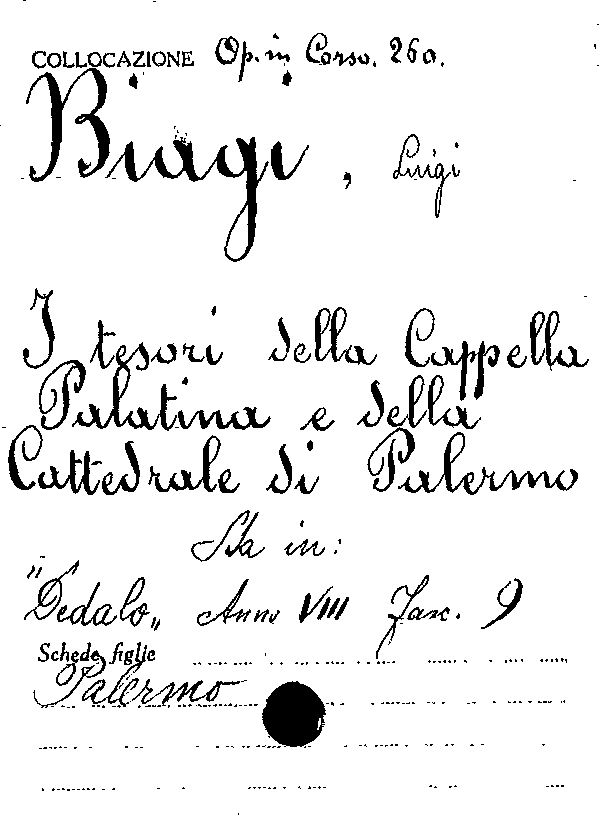 COLLOCAZIONE Op. in Corso. 26a.
Biagi, Luigi
I tesori della Cappella
Palatina e della
Cattedrale di Palermo
Sta in:
"Dedalo„ Anno VIII Fasc. 9
Schede figlie
Palermo